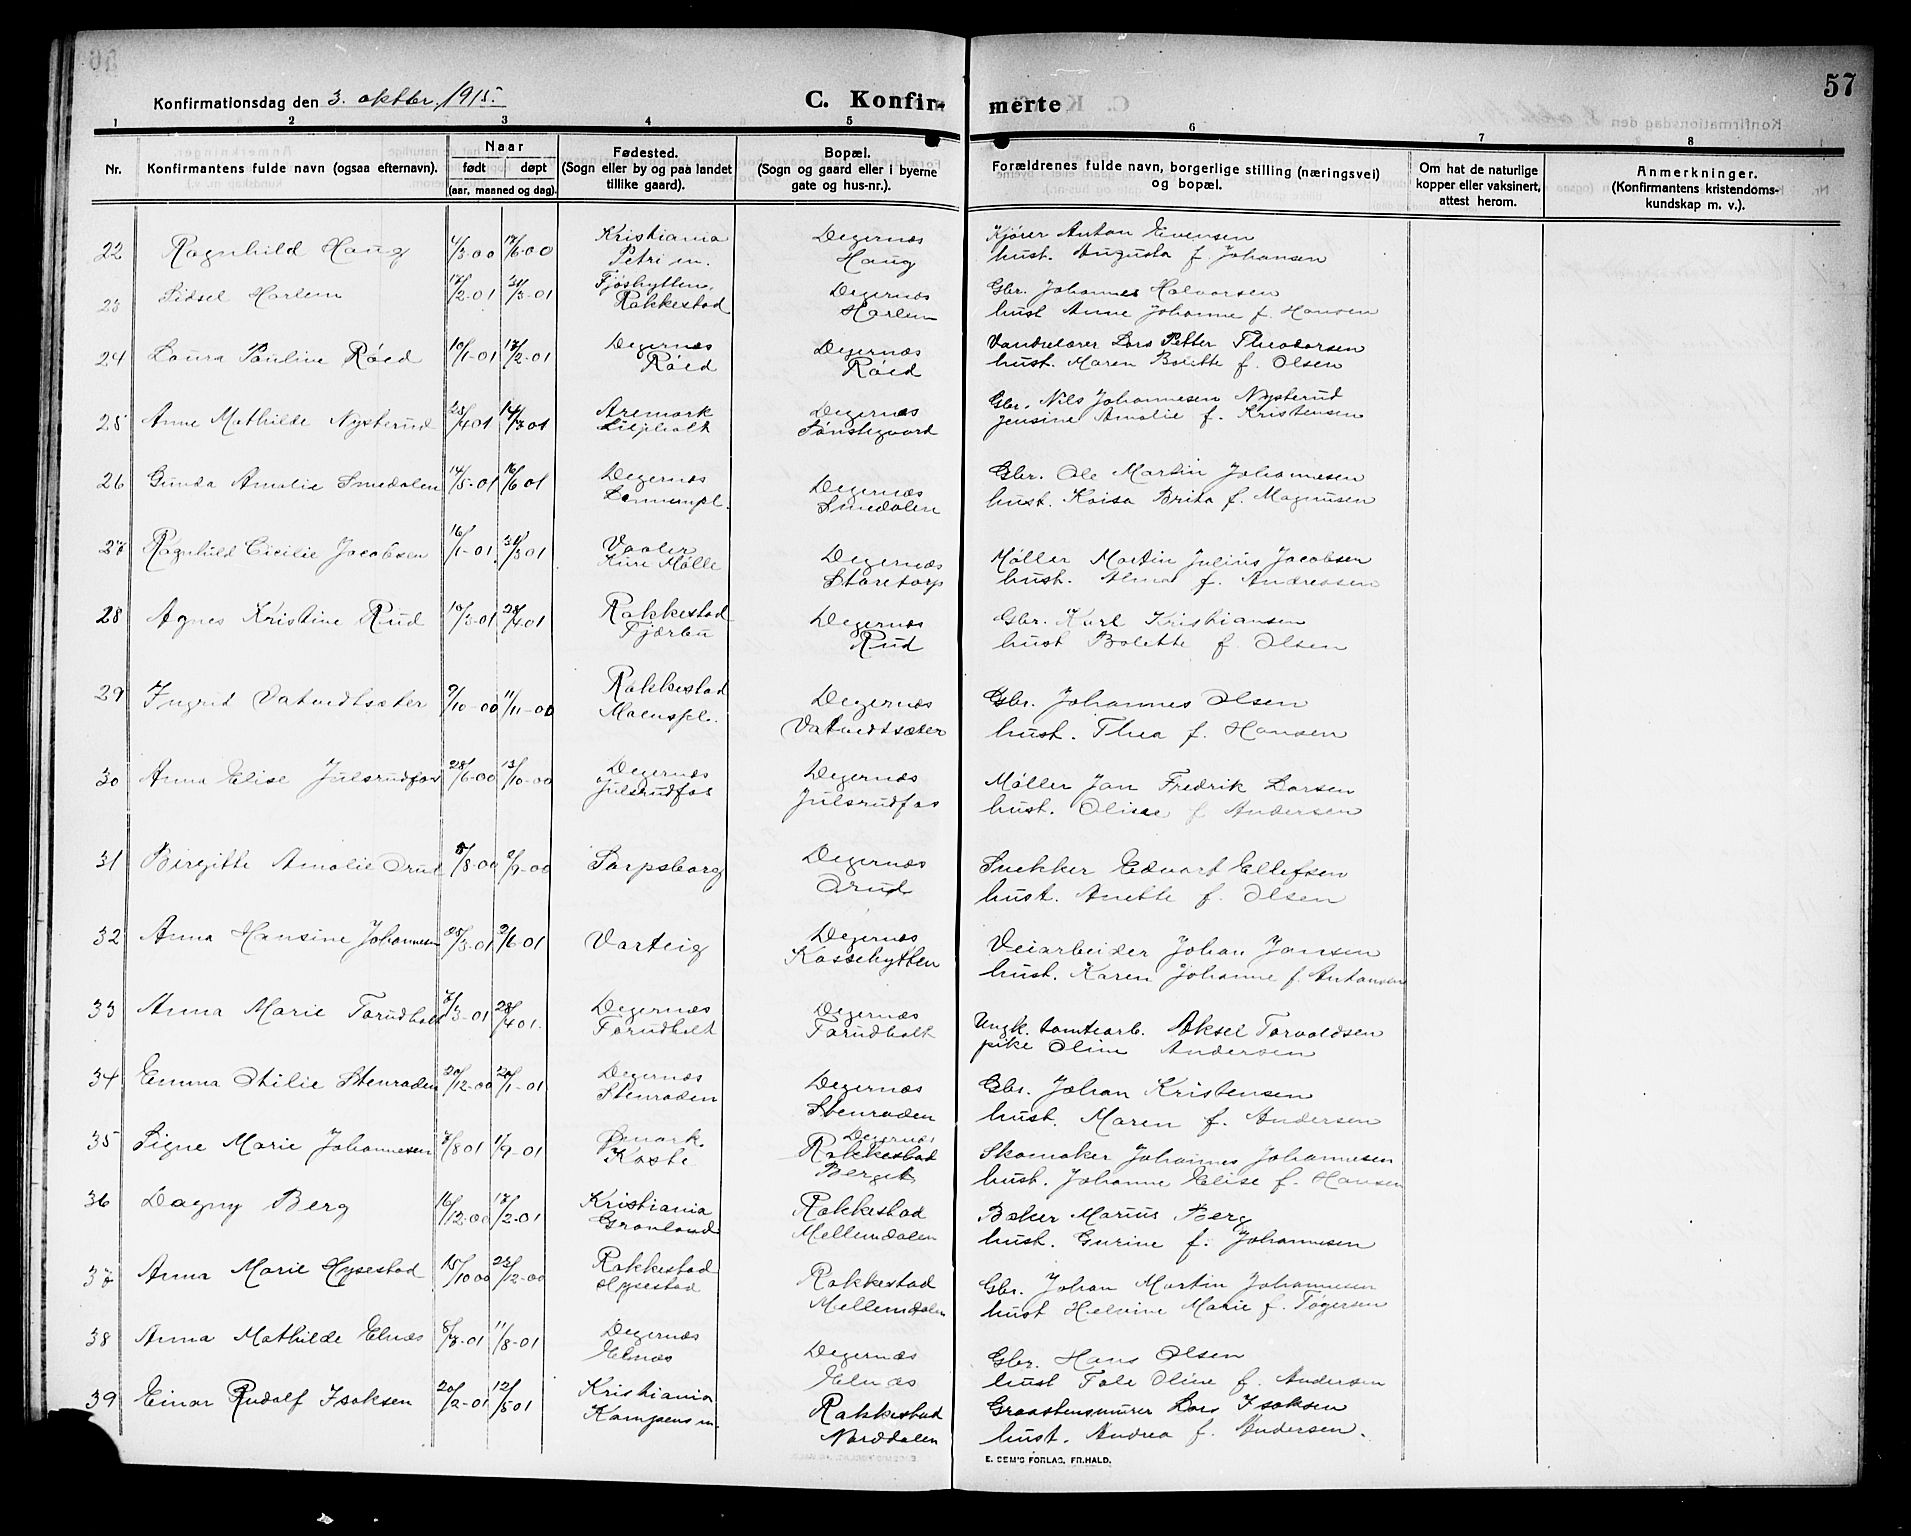 57
Konfirmationsdag den 3. oktbr. 1915.
C. Konfirmerte
1 2 3 4 5 6 7 8
Nr. Konfirmantens fulde navn (ogsaa efternavn). Naar født døpt (aar, maaned og dag). Fødested. (Sogn eller by og paa landet tillike gaard). Bopæl. (Sogn og gaard eller i byerne gate og hus-nr.). Forældrenes fulde navn, borgerlige stilling (næringsvei) og bopæl. Om hat de naturlige kopper eller vaksinert, attest herom. Anmerkninger. (Konfirmantens kristendoms-kundskap m. v.).
22 Ragnhild Haug 4/3-00 17/6-00 Kristiania Petri m. Degernæs Haug Kjører Anton Evensen
hust. Augusta f. Johansen
23 Sidsel Harlem 17/2-01 31/3-01 Fjøshytten, Rakkestad Degernæs Harlem Gbr. Johannes Halvorsen
hust Anne Johanne f. Hansen
24 Laura Pauline Røed 10/1-01 17/2-01 Degernæs Røed Degernæs Røed Lars Petter Theodorsen
hust. Maren Bolette f. Olsen
25 Anne Mathilde Nysterud 25/4 01 14/7 01 Aremark Degernæs Sønstegaard Gbr. Nils Johannesen Nysterud
Jensine Amalie f. Kristensen
26 Gunda Amalie Smedalen 14/5-01 16/6 01 Degernæs Degernæs Smedalen Gbr. Ole Martin Johannesen
hust. Kaisa Brita f. Magnusen
27 Ragnhild Cicilie Jacobsen 16/1-01 31/3 01 Vaaler Kure Mølle Degernæs Staretorp Møller Martin Julius Jacobsen
hust. Alma f. Andreassen
28 Agnes Kristine Rud 10/3-01 28/4 01 Rakkestad Fjærbu Degernæs Rud Gbr. Karl Kristiansen
hust Bolette f. Olsen
29 Ingrid Vatvedtsæter 9/10-00 11/11-00 Rakkestad Moenspl. Degernæs Vatvedtsæter Gbr. Johannes Olsen
hust. Thea f. Hansen
30 Anna Elise Julsrudfos 28/6-00 13/10-00 Degernæs Julsrudfos Degernæs Julsrudfos Møller Jan Fredrik Larsen
hust. Olise f Andersen
31 Birgitte Amalie Orud 5/8-00 2/9-00 Sarpsborg Degernæs Orud Snekker Edvart Ellefsen
hust. Anette f. Olsen
32 Anna Hansine Johannesen 25/3-01 2/6-01 Varteig Degernæs Kassehytten Veiarbeider Johan Jansen
hust. Karen Johanne f. Antonsen
33 Anna Marie Torudholt 7/3-01 28/4 01. Degernæs Torudholt Degernæs Torudholt Ungk. tomtearb. Aksel Torvaldsen
pike Oline Andersen
34 Emma Otilie Stenraden 20/12-00 20/1-01 Degernæs Stenraden Degernæs Stenraden Gbr. Johan Kristensen
hust. Maren f. Andersen
35 Signe Marie Johannesen 7/8 01 1/9-01 Ømark. Kaste Degernæs Rakkestad Berget Skomaker Johannes Johannesen
hust. Johanne Elise f. Hansen
36 Dagny Berg 16/12-00 17/2-01 Kristiania Grønland Rakkestad Mellemdalen Baker Marius Berg
hust. Gurine f. Johannesen
37 Anna Marie Hysestad 15/10 00 23/12-00 Rakkestad Hysestad Rakkestad Mellemdalen Gbr. Johan Martin Johannesen
hust Helvine Marie f. Tøgersen
38 Anna Mathilde Elnæs 8/7-01 11/8-01 Degernæs Elnæs Degernæs Elnæs Gbr. Hans Olsen
hust Tale Oline f. Andersen
39 Einar Rudolf Isaksen 20/2-01 12/5 01 Kristiania Kampens m. Rakkestad Norddalen Graastensmurer Lars Isaksen
hust. Andrea f. Andersen.
E. SEM'S FORLAG, FR.HALD.